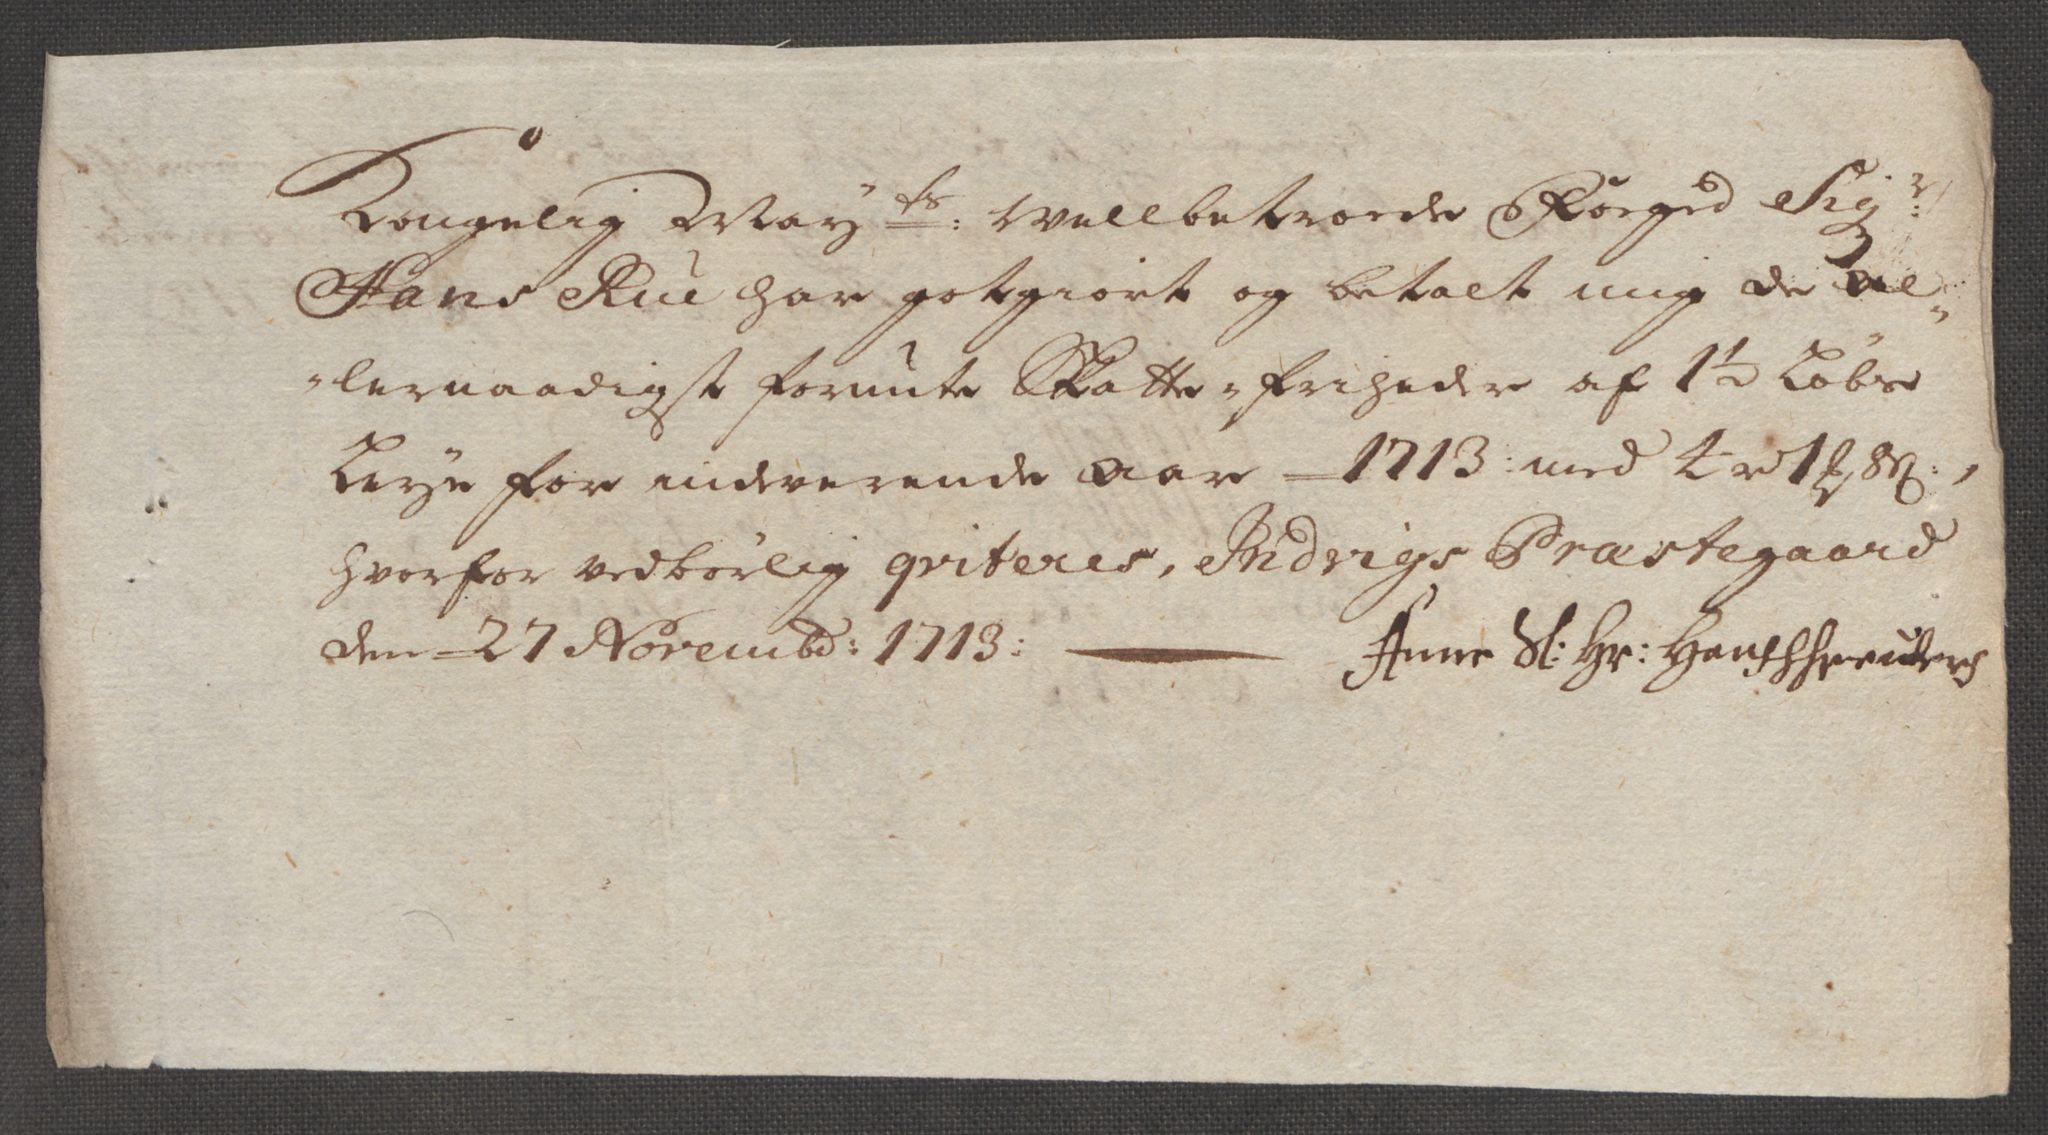 Kongelig May ts: Wellbetroede Foeged Sigr:
Hans Rue har gotgiort og betalt mig de al„
„lernaadigst forunte Skatte„friheder af 1½ Løbs
Leye for indeverende aar 1713: med
hvorfor vedbørlig qviteres, Indvigs Præstegaard
den 27 Novembd: 1713:
Anne Sl: Hr: Hans